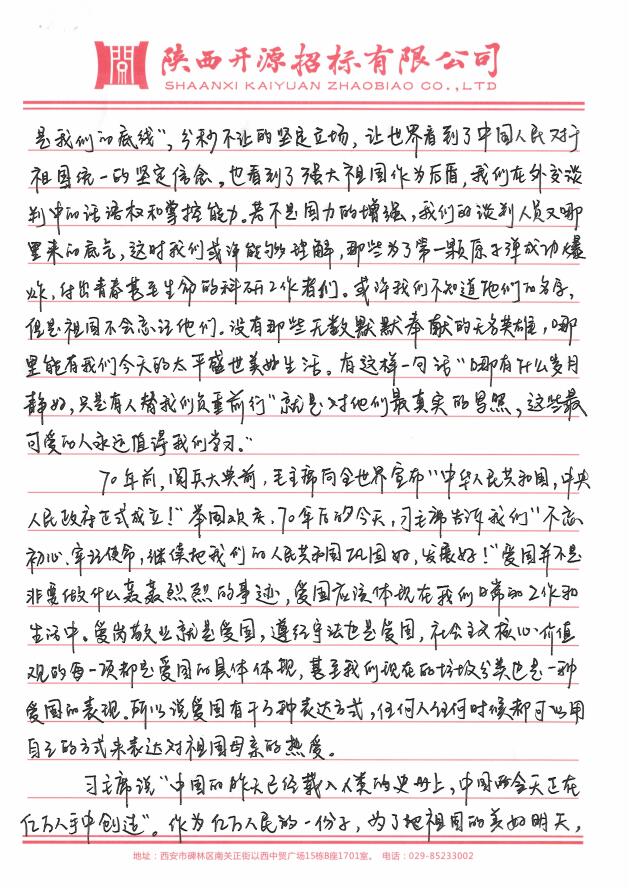 陕西开源招标有限公司
SHAANXI KAIYUAN ZHAOBIAO CO.,LTD
是我们的底线”，分秒不让的坚定立场，让世界看到了中国人民对于
祖国统一的坚定信念。也看到了强大祖国作为后盾，我们在外交谈
判中的话语权和掌控能力。若不是国力的增强，我们的谈判人员又哪
里来的底气，这时我们或许能够理解，那些为了第一颗原子弹成功爆
炸，付出青春甚至生命的科研工作者们。或许我们不知道他们的名字，
但是祖国不会忘记他们。没有那些无数默默奉献的无名英雄，哪
里能有我们今天的太平盛世美好生活。有这样一句话“哪有什么岁月
静好，只是有人替我们负重前行”就是对他们最真实的写照，这些最
可爱的人永远值得我们学习。”
70年前，阅兵大典前，毛主席向全世界宣布“中华人民共和国，中央
人民政府正式成立！”举国欢庆，70年后的今天，习主席告诉我们“不忘
初心、牢记使命，继续把我们的人民共和国巩固好，发展好！”爱国并不是
非要做什么轰轰烈烈的事迹，爱国应该体现在我们日常的工作和
生活中。爱岗敬业就是爱国，遵纪守法也是爱国，社会主义核心价值
观的每一项都是爱国的具体体现，甚至我们现在的垃圾分类也是一种
爱国的表现。所以说爱国有千万种表达方式，任何人任何时候都可以用
自己的方式来表达对祖国母亲的热爱。
习主席说“中国的昨天已经载入人类的史册上，中国的今天正在
亿万人手中创造”。作为亿万人民的一份子，为了把祖国的美好明天，
地址：西安市碑林区南关正街以西中贸广场15栋B座1701室。 电话：029-85233002